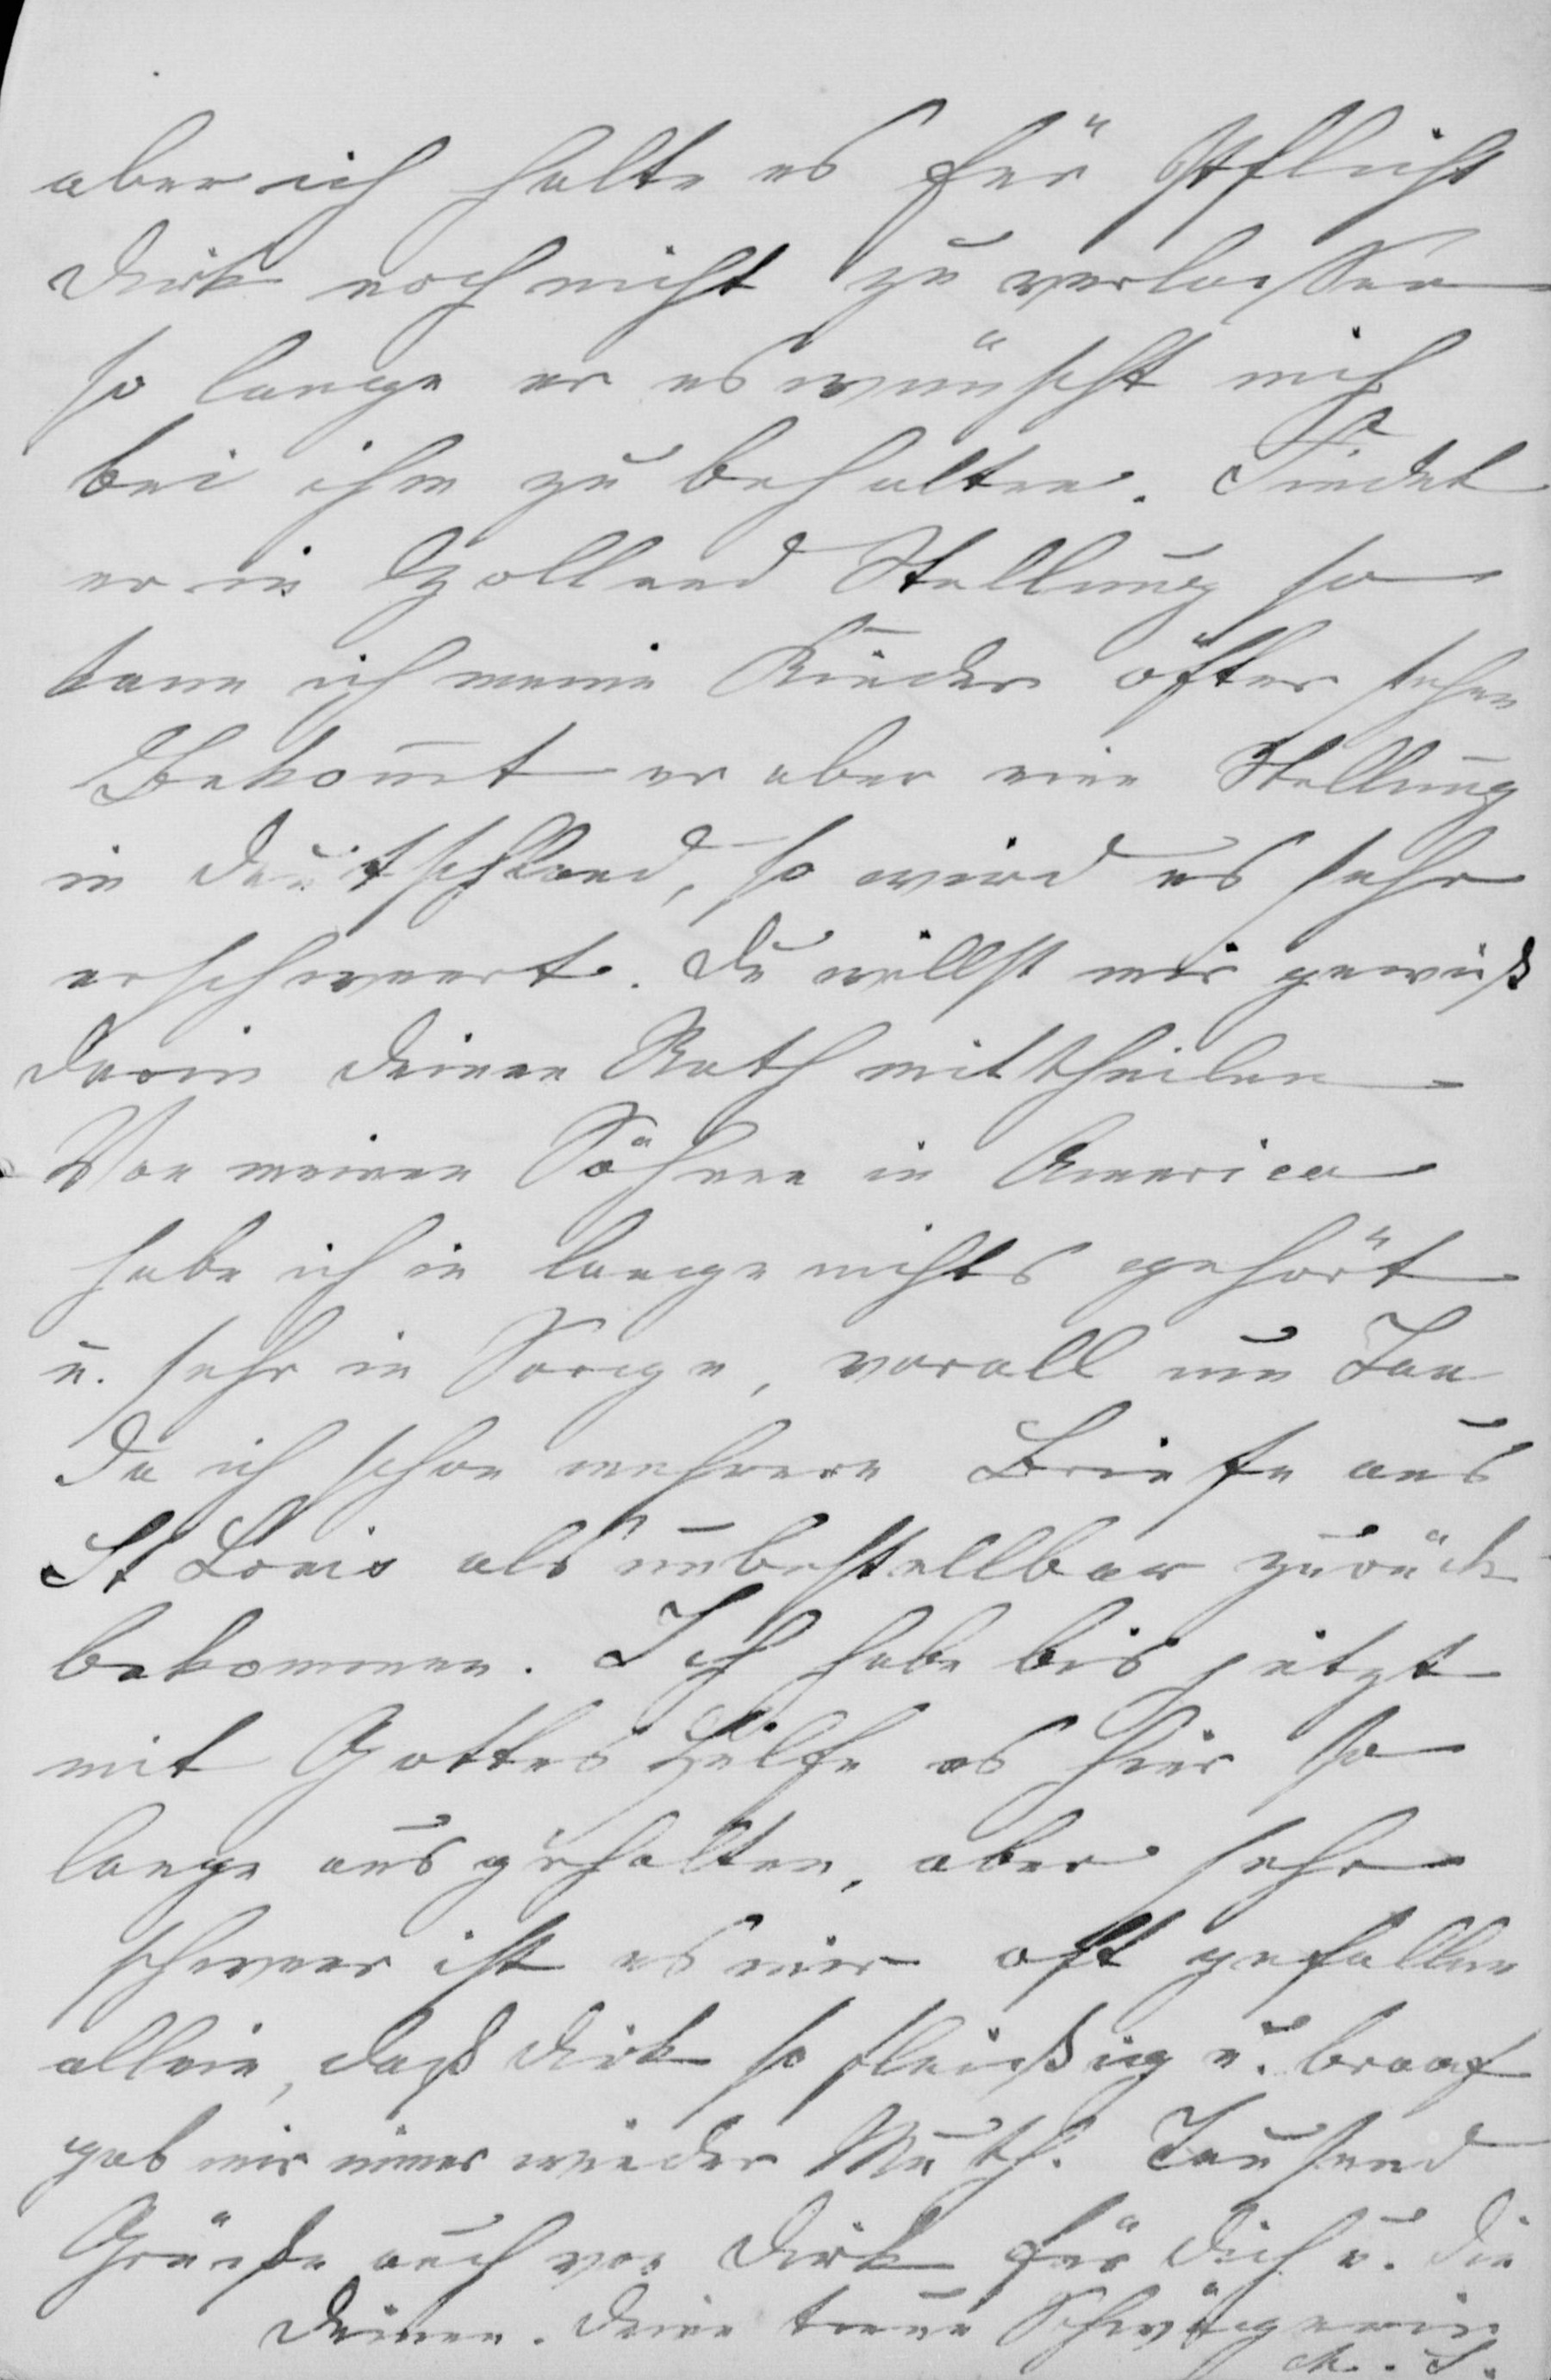 aber ich halte es für Pflicht
Dirk noch nicht zu verlassen
so lange er es wünscht mich
bei ihm zu behalten. Findet
er in Holland Stellung so
kann ich meine Kinder öfter sehen
Bekom̅t er aber eine Stellung
in Deutschland, so wird es sehr
erschweert. Du willst mir gewiß
darin deinen Rath mittheilen
Von meinen Söhnen in America
habe ich in lange nichts gehört
u. sehr in Sorge, vorall um Jan
da ich schon mehrere Briefe aus
St Louis als unbestellbar zurück
bekommen. Ich habe bis jetzt
mit Gottes Hülfe es hier so
lange ausgehalten, aber sehr
schweer ist es mir oft gefallen
allein, daß Dirk so fleißig u. braaf
gab mir immer wieder Muth. Tausend
Grüße auch von Dirk für Dich u. die
Deinen. Deine treue Schwägerin